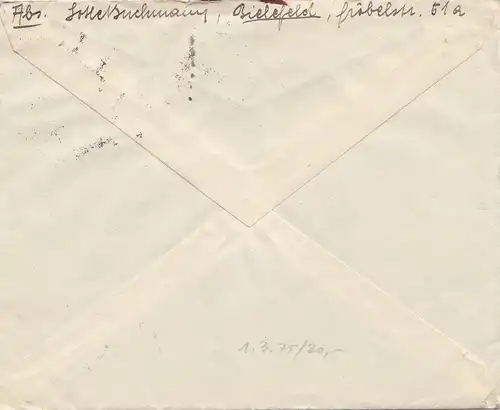 Abs. Lotte Buchmann, Bielefeld, Fröbelstr. 51a
1.3.75/20,-